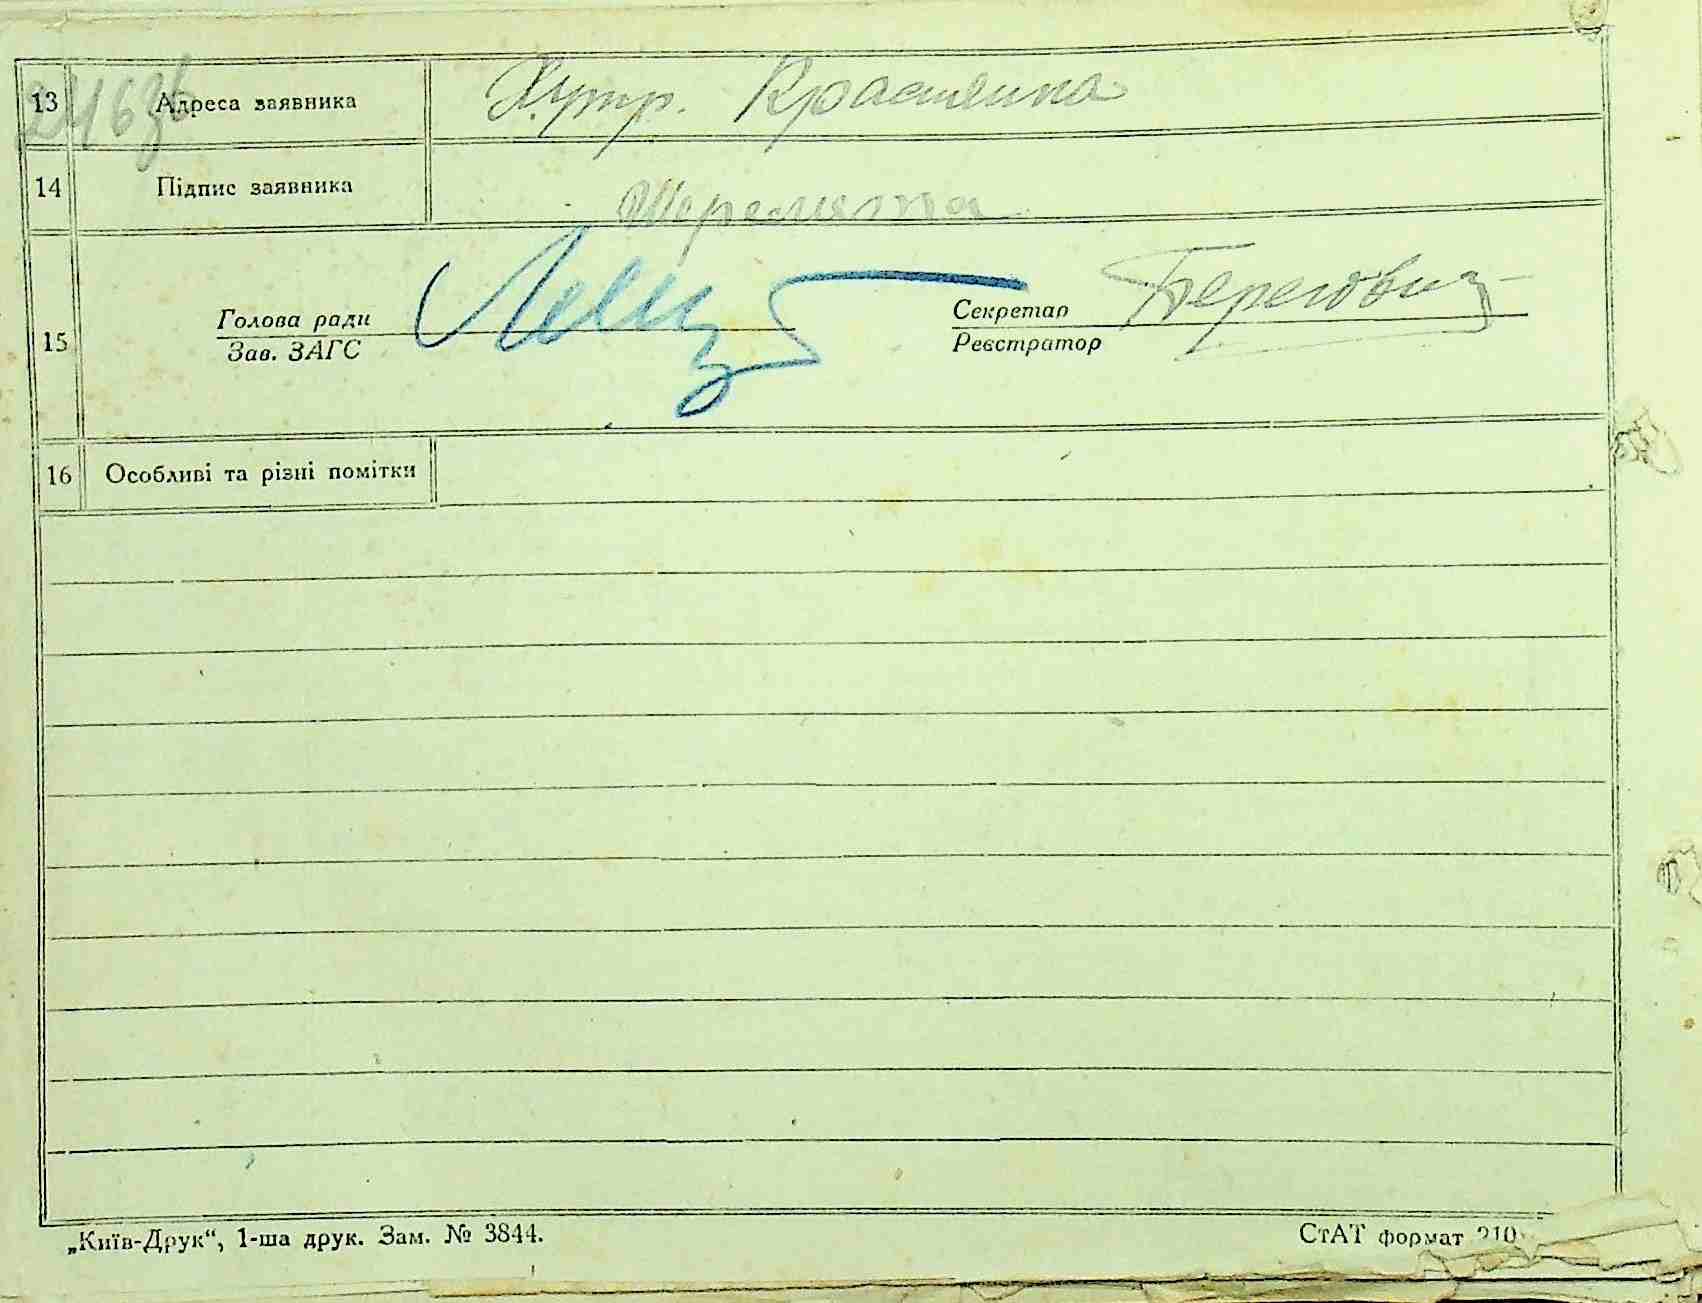 13 Адреса заявника Хутр. Краснянка
14 Підпис заявника
15 Голова ради Секретар
Зав. ЗАГС Реєстратор
16 Особливі та різні помітки
„Київ-Друк“, 1-ша друк. Зам. № 3844. СтАТ формат 210